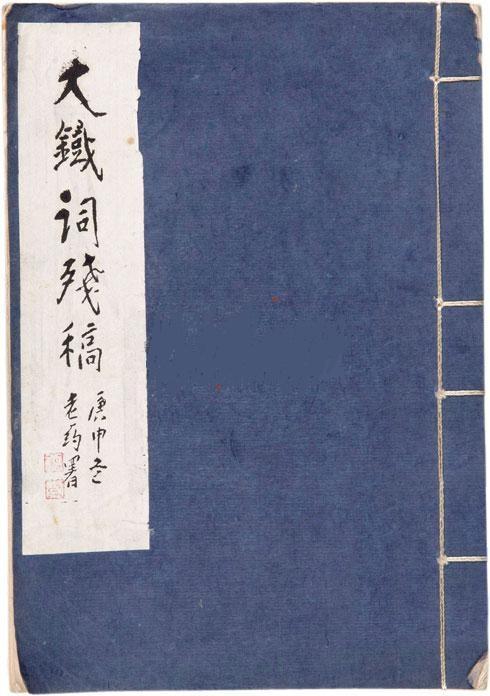 大鐵词殘稿
庚申冬
老药署